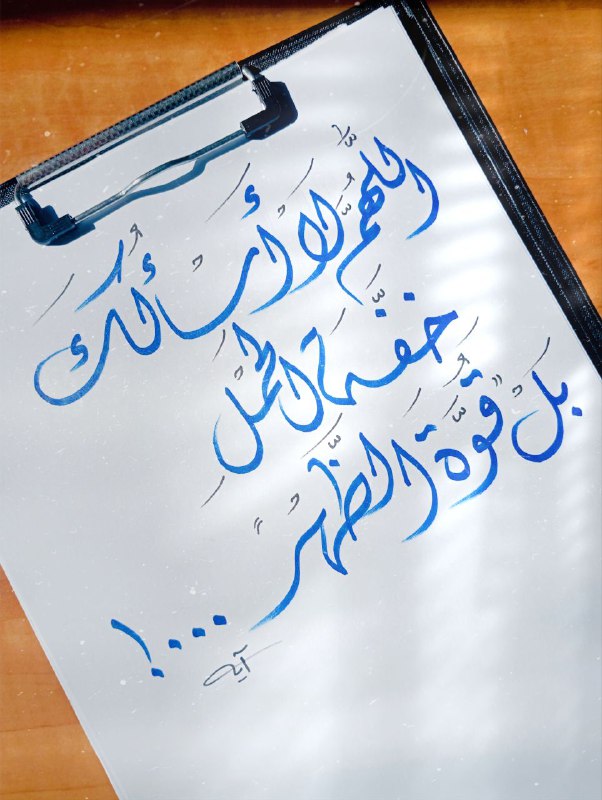 اللهُمَّ لَا أَسْأَلُكَ
خفّةَ الحِملَ
بَلْ قُوَّةَ الظَّهْرِ
....!
آية